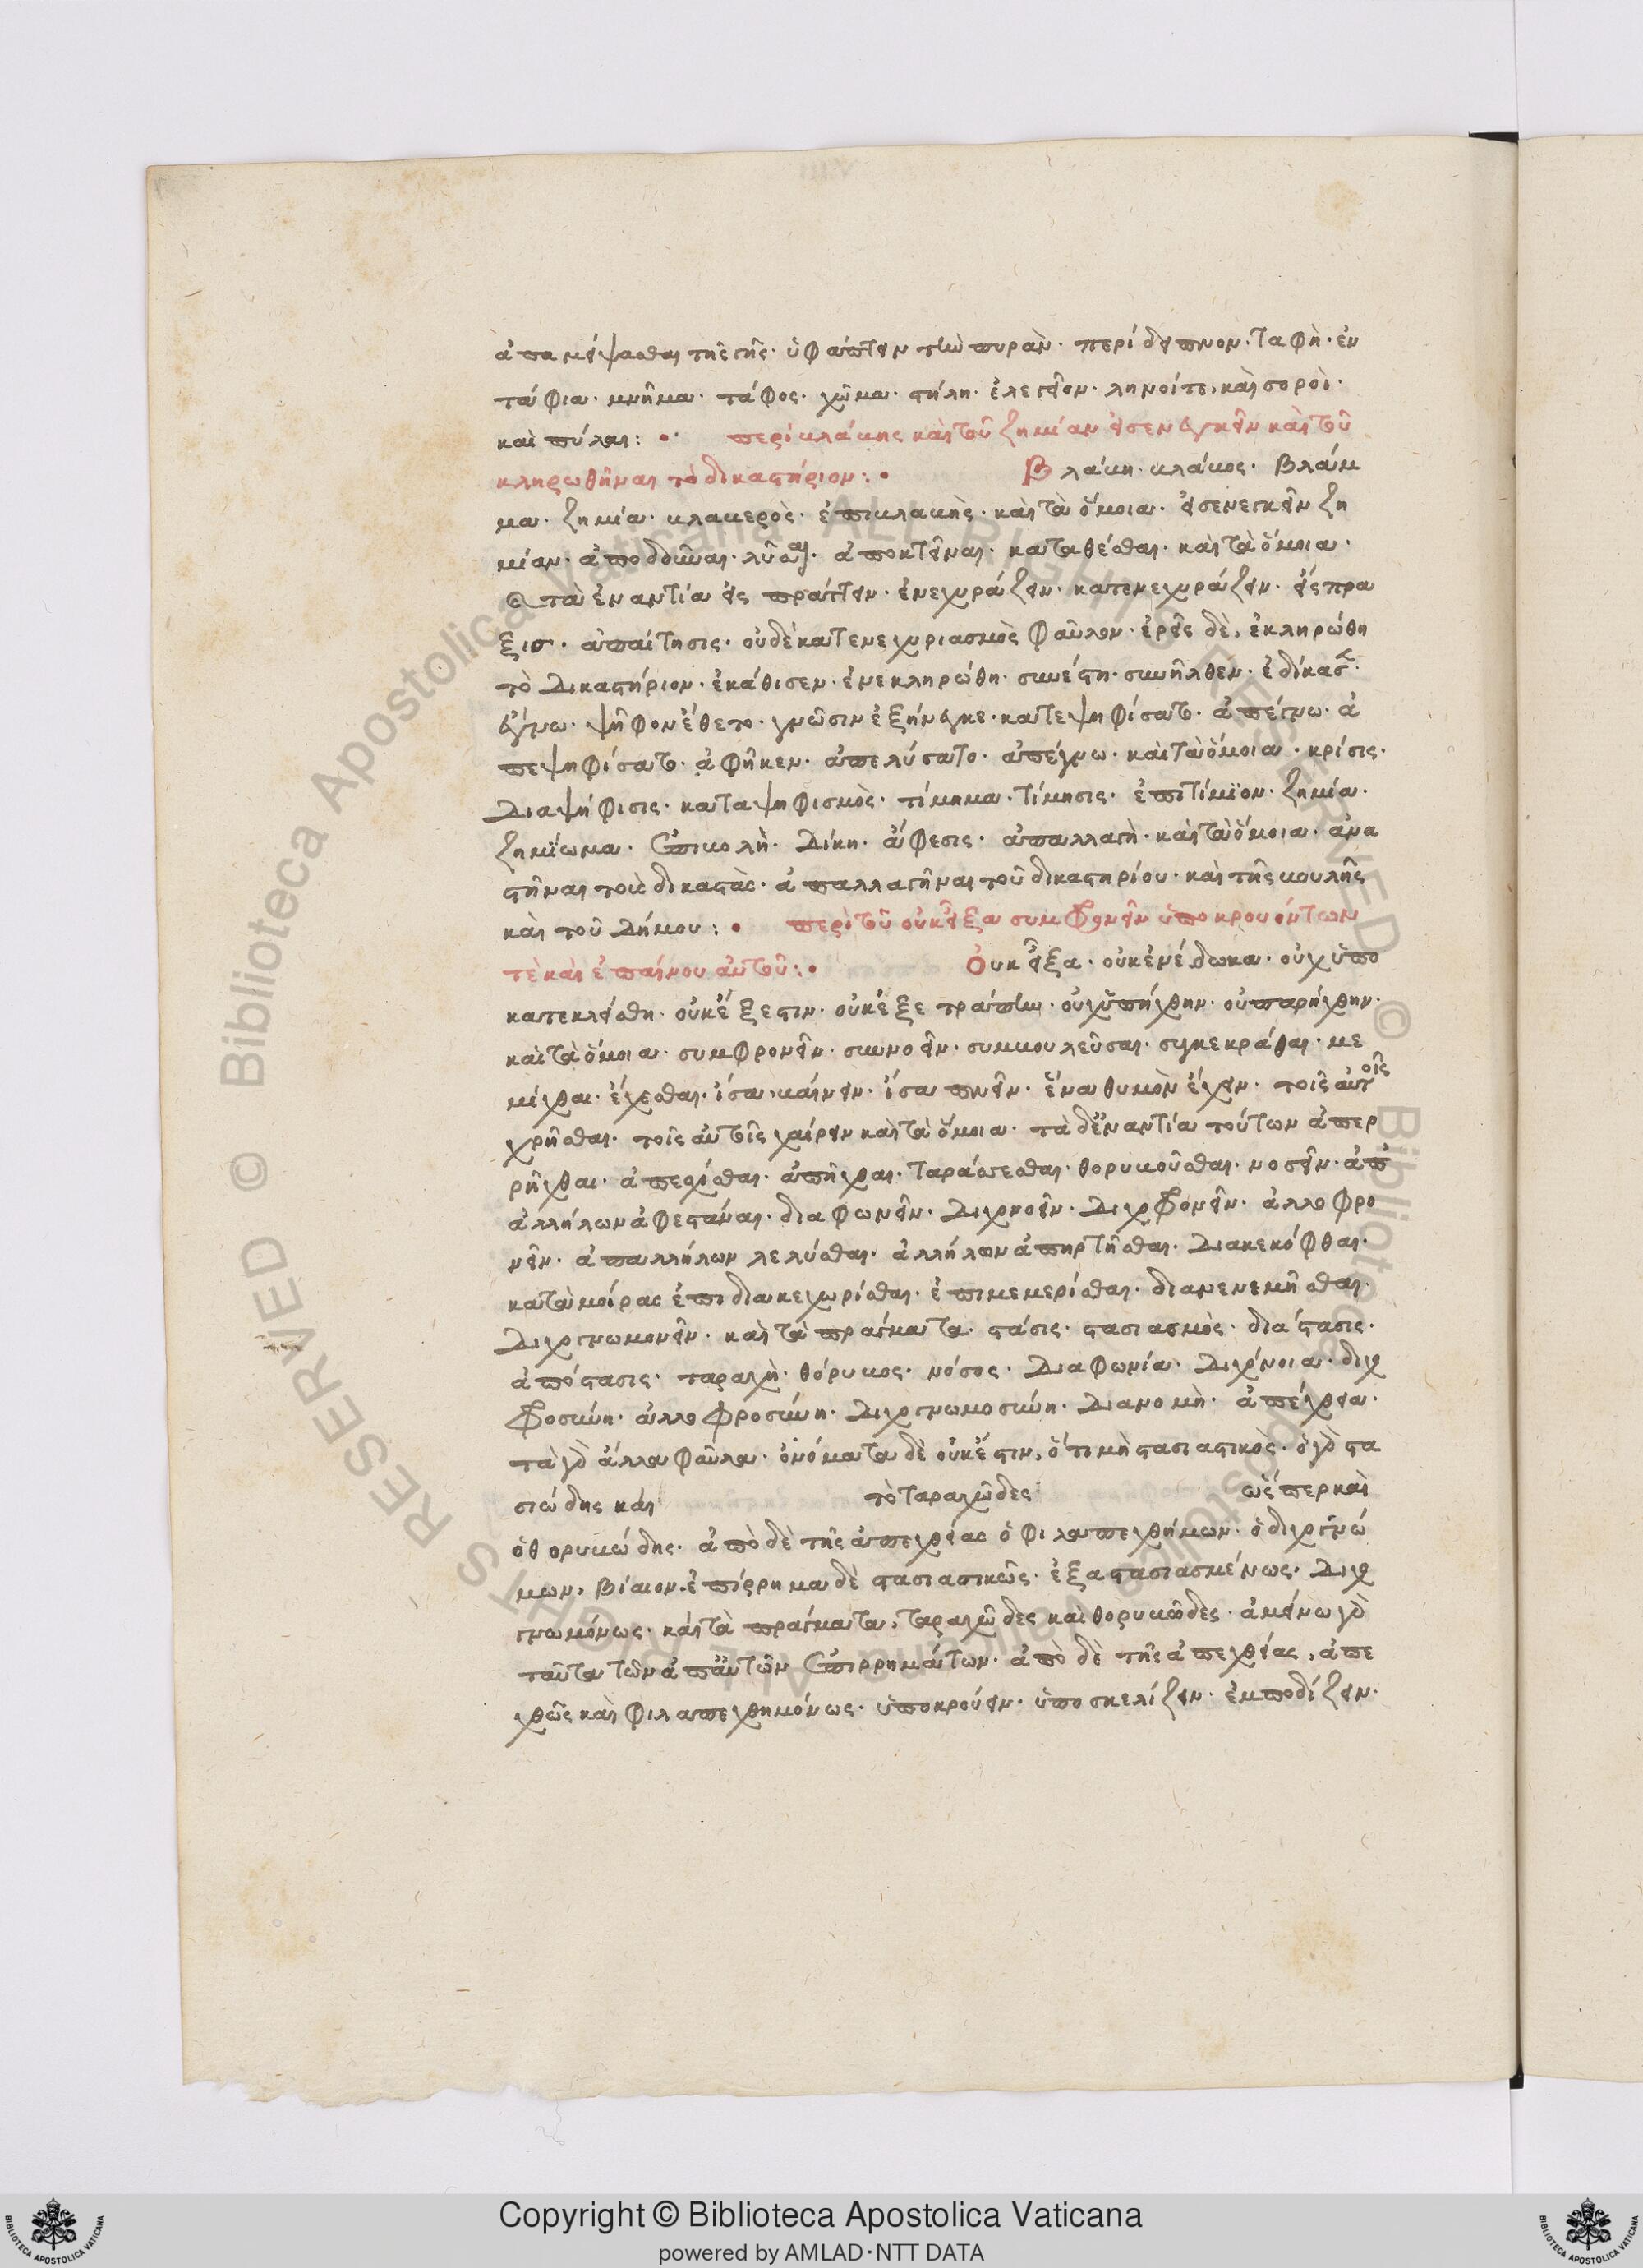 ἀπαμείψασθαι τῆς γῆς· ὑφάπτειν τὴν πυρὰν· περίδειπνον· ταφὴ· ἐν
τάφια· μνῆμα· τάφος· χῶμα· στήλη· ἐλεγεῖον· ληνοί τε, καὶ σοροὶ·
καὶ πύλαι:
περὶ βλάβης καὶ τοῦ ζημίαν εἰσενεγκεῖν καὶ τοῦ
κληρωθῆναι τὸ δικαστήριον:
Βλάβη· βλάβος· βλάμ
μα· ζημία· βλαβερὸς· ἐπιβλαβὴς· καὶ τὰ ὅμοια· εἰσενεγκεῖν ζη
μίαν· ἀποδοῦναι· λῦσαι· ἀποκτεῖναι· καταθέσθαι· καὶ τὰ ὅμοια·
τὰ ἐναντία εἰς πράττειν· ἐνεχυράζειν· κατενεχυράζειν· εἴσπρα
ξισ· ἀπαίτησις· οὐδὲ κατενεχυριασμὸς φαῦλον· ἐρεῖς δὲ, ἐκληρώθη
τὸ δικαστήριον· ἐκάθισεν· ἐνεκληρώθη· συνέστη· συνῆλθεν· ἐδίκασ·
ἔγνω· ψῆφον ἔθετο· γνῶσιν ἐξήνεγκε· κατεψηφίσατο· ἀπέγνω· ἀ
πεψηφίσατο· ἀφῆκεν· ἀπελύσατο· ἀπέγνω· καὶ τὰ ὅμοια· κρίσις·
διαψήφισις· καταψηφισμὸς· τίμημα· τίμησις· ἐπιτίμϊον· ζημία·
ζημίωμα· ἐπιβολὴ· δίκη· ἄφεσις· ἀπαλλαγὴ· καὶ τὰ ὅμοια· ἀνα
στῆναι τοὺς δικαστὰς· ἀπαλλαγῆναι τοῦ δικαστηρίου· καὶ τῆς βουλῆς
καὶ τοῦ δήμου:
περὶ τοῦ οὐκ εἶξα συμφρονεῖν ὑποκρουόντων
τὲ καὶ ἐπαίνου αὐτοῦ:
Οὐκ εἶξα· οὐκ ἐνέδωκα· οὐχ ὑπο
κατεκλείσθη· οὐκ ἔξεστιν· οὐκ ἐξετράπην· οὐχ ὑπήχθην· οὐ παρήχθην·
καὶ τὰ ὅμοια· συμφρονεῖν· συννοεῖν· συμβουλεῦσαι· συγκεκρᾶσθαι· με
μίχθαι· ἔχεσθαι· ἴσα βαίνειν· ἴσα πνεῖν· ἕνα θυμὸν ἔχειν· τοῖς αὐτοῖς
χρῆσθαι· τοῖς αὐτοῖς χαίρειν καὶ τὰ ὅμοια· τὰ δ' ἐναντία τούτων ἀπερ
ρῆχθαι· ἀπεσχίσθαι· ἀπῆχθαι· ταράττεσθαι· θορυβοῦσθαι· νοσεῖν· ἀπ
ἀλλήλων ἀφεστάναι· διαφωνεῖν· διχονοεῖν· διχοφρονεῖν· ἀλλοφρο
νεῖν· ἀπαλλήλων λελύσθαι· ἀλλήλων ἀπηρτῆσθαι· διακεκόφθαι·
κατὰ μοίρας ἐπιδιακεχωρίσθαι· ἐπιμεμερίσθαι· διανενεμῆσθαι·
διχογνωμονεῖν· καὶ τὰ πράγματα· στάσις· στασιασμὸς· διάστασις·
ἀπόστασις· ταραχὴ· θόρυβος· νόσος· διαφωνία· διχόνοια· διχο
φροσύνη· ἀλλοφροσύνη· διχογνωμοσύνη· διανομὴ· ἀπέχθεια·
τὰ γὰρ ἄλλα φαῦλα· ὀνόματα δὲ οὐκ ἔστιν, ὅτι μὴ στασιαστικὸς· ὁ γὰρ στα
σιώδης καὶ τὸ ταραχῶδες ὥσπερ καὶ
ὁ θορυβώδης· ἀπὸ δὲ τῆς ἀπεχθείας ὁ φιλαπεχθήμων· ὁ διχογνώ
μων, βίαιον· ἐπίρρημα δὲ στασιαστικῶς· ἐξαστασιασμένως· διχο
γνωμόνως· καὶ τὰ πράγματα, ταραχῶδες καὶ θορυβῶδες· ἀμείνω γὰρ
ταῦτα τῶν ἀπ' αὐτῶν ἐπιρρημάτων· ἀπὸ δὲ τῆς ἀπεχθείας, ἀπε
χθῶς καὶ φιλαπεχθημόνως· ὑποκρούειν· ὑποσκελίζειν· ἐμποδίζειν·
Copyright © Biblioteca Apostolica Vaticana
powered by AMLAD·NTT DATA